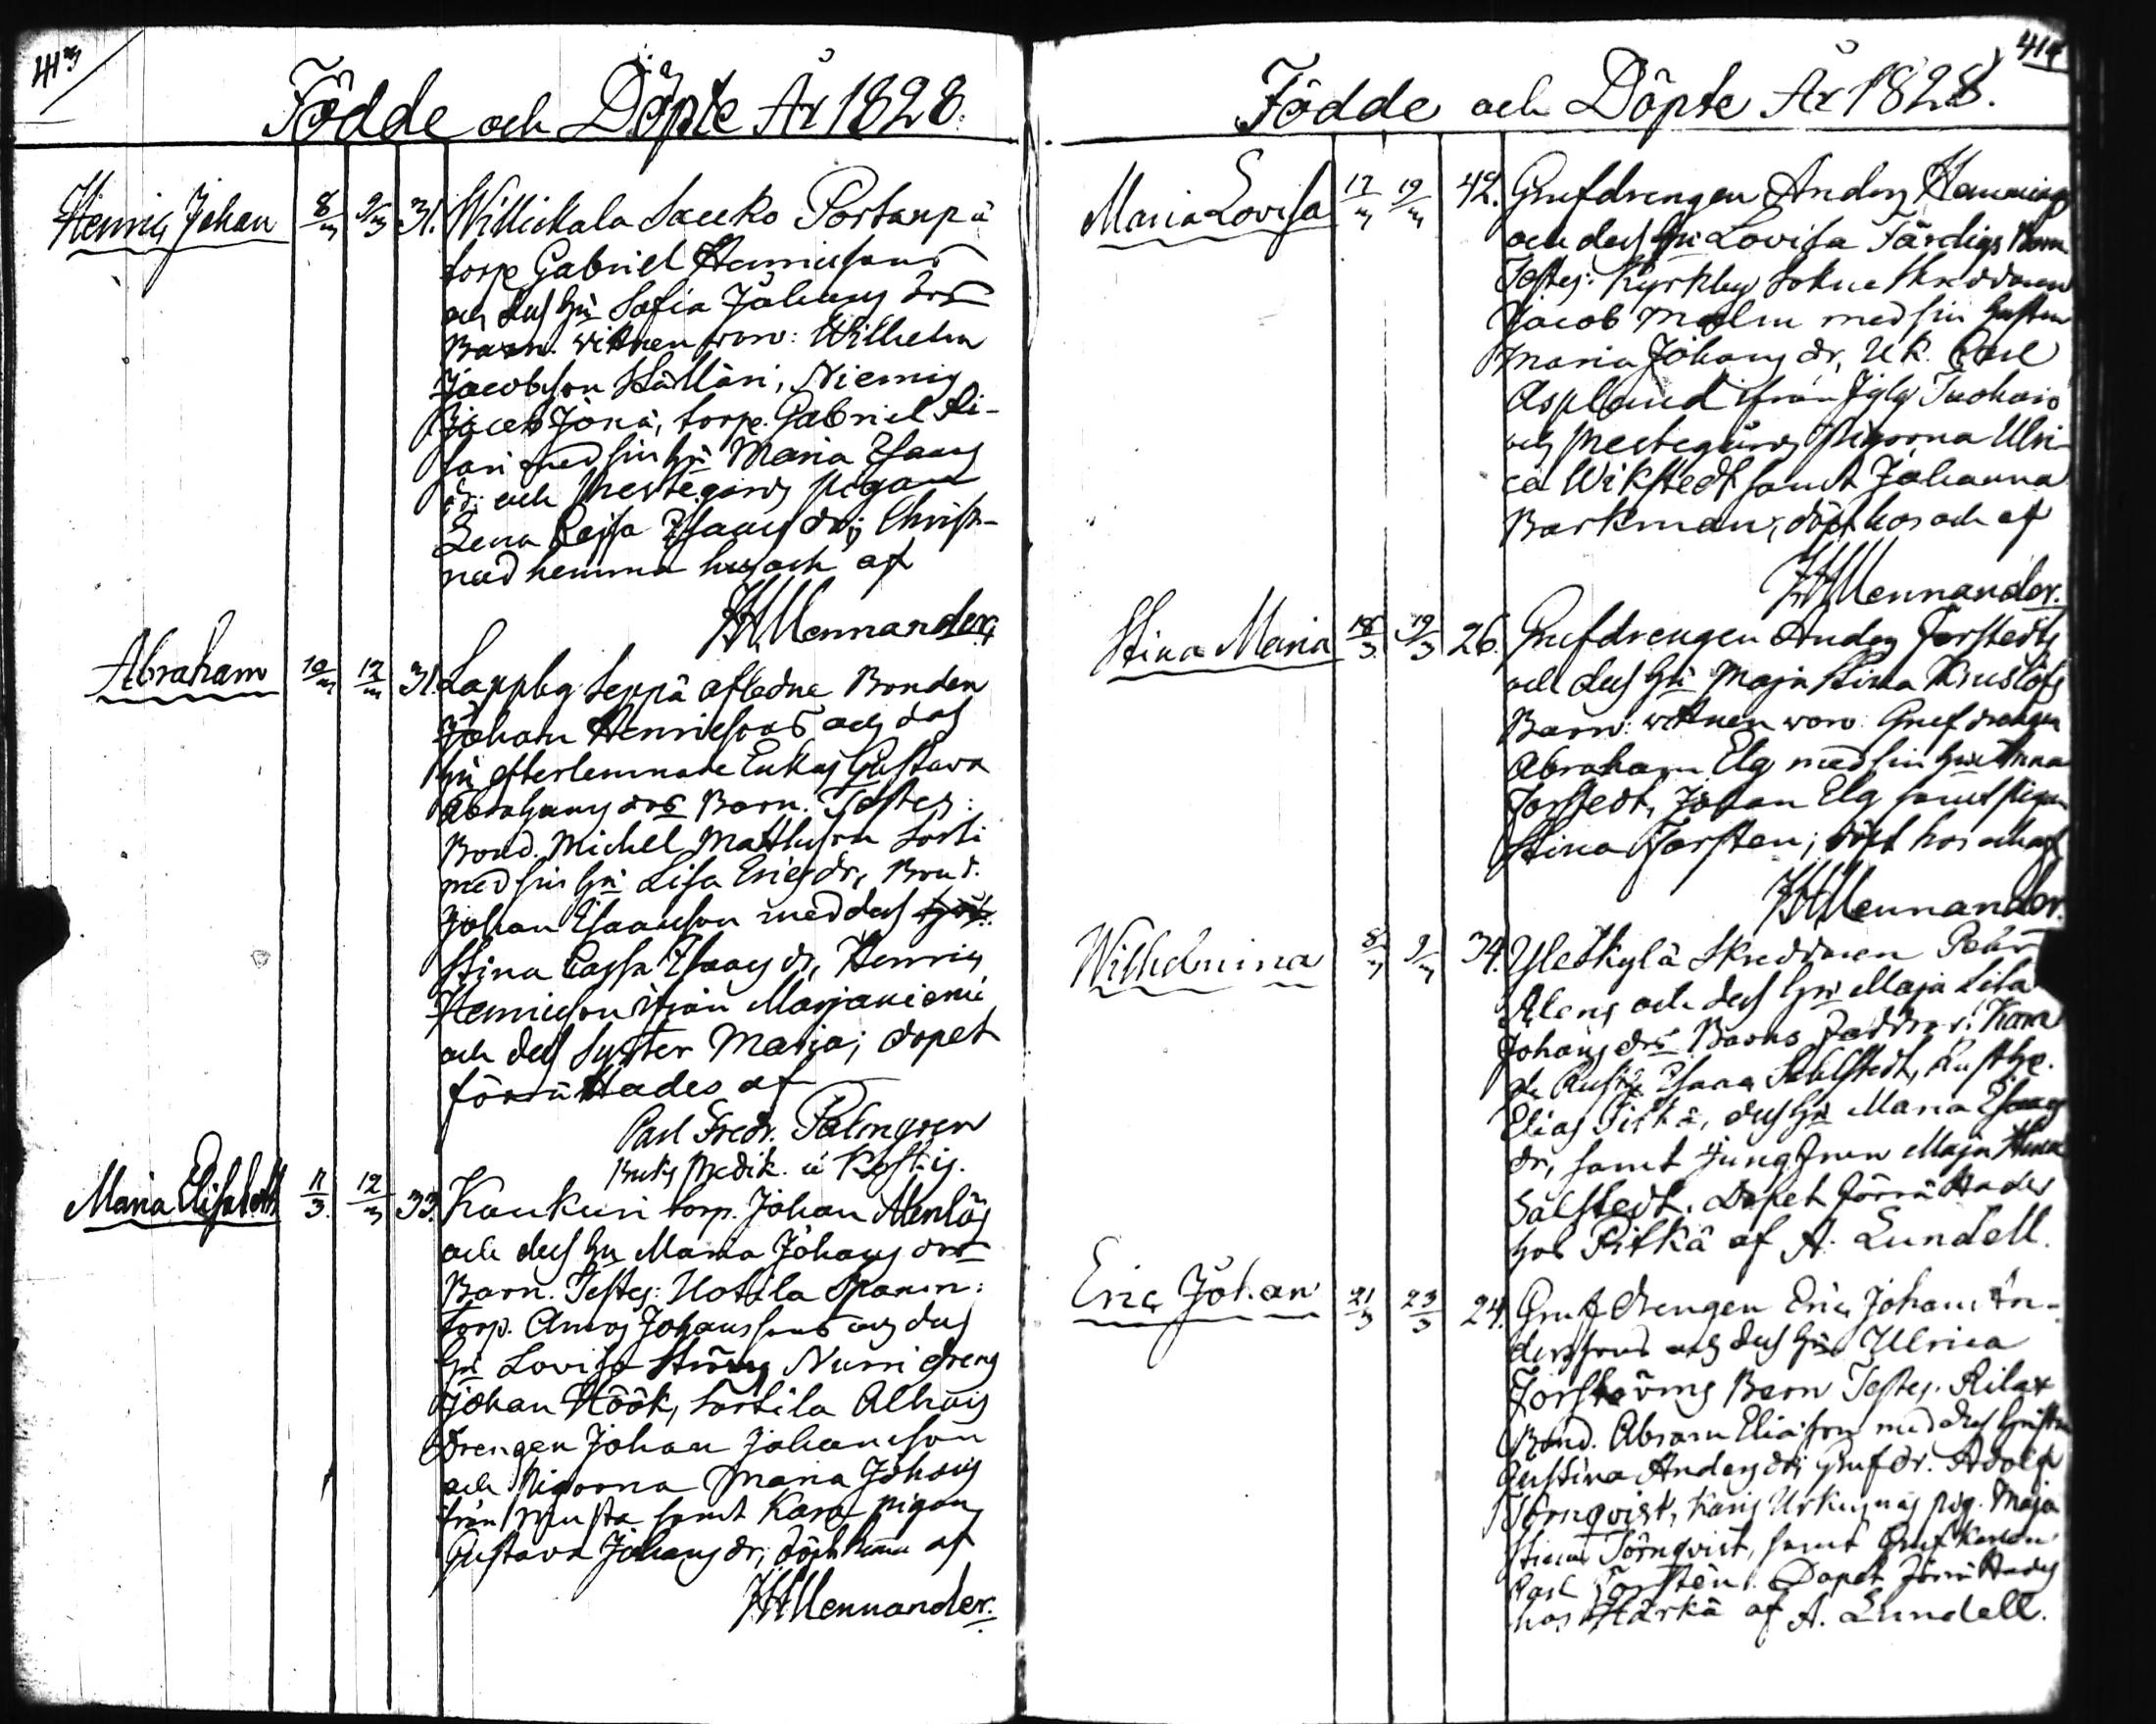 413
Födde och Döpte År 1828.
Henric Johan 8/3 9/3 31. Willickala Saeko Portanp å
torp. Gabriel Henricsons
och dess Hu Sofia Johans drs
Barn. Wittnen woro: Wilhelm
Jacobsson Hällari, Niemis
Jacob Jona, torp. Gabriel Ri-
sari med sin Hu Maria Isaacs
dr. och Prestegårds pigan
Lena Cajsa Isaacs dr; Christ-
nad hemma hos och af
HMennander.
Abraham 10/3 12/3 31. Lappby Seppä afledne Bonden
Johan Henricsons och dess
Hu efterlemnade Enkas Gustava
Abrahams drs Barn. Testes:
Bond. Michel Mattsson Sorti
med sin Hu Lisa Ericsdr, Bond.
Johan Isaacsson med dess
Stina Cajsa Isaacs dr, Henric
Henricson ifrån Marjaniemi
och dess Syster Maria; dopet
förrättades af
Carl Fredr. Palmgren
Bruks Predik. å Koskis.
Maria Elisabeth 11/3 12/3 33. Kaukuri torp. Johan Stenlös
och dess Hu Maria Johans drs
Barn. Testes: Hotila Spanin:
torp. Amos Johanssons och dess
Hu Lovisa Ströms Nurri dreng
Johan Höök, Sortila Alhais
Drengen Johan Johansson
och Pigorna Maria Johans
från Musta samt Kara pigan
Gustava Johans dr; döpt hemma af
HMennander.
414
Födde och Döpte År 1828.
Maria Lovisa 17/3 19/3 42. Grufdrengen Anders Hemmings
och dess Hu Lovisa Färdigs Barn
Testes: Kyrkby Sokne Skreddaren
Jacob Malm med sin Hustru
Maria Johans dr, U.K. Carl
Asplund ifrån Jglg Tuohais
och Prestegårds Pigorna Ulri-
ca Wikstedt samt Johanna
Barkman; döpt hos och af
HMennander.
Stina Maria 18/3 19/3 26. Grufdrengen Anders Forstedts
och dess Hu Maja Stina Kruslöfs
Barn: wittnen woro: Grufdrengen
Abraham Elg med sin Hu Anna
Forstedt, Johan Elg samt Pigan
Stina Forsten; döpt hos och af
HMennander.
Wilhelmina 8/3 9/3 34. Yleskylä Skreddaren Pehr
Alens och dess Hu Maja Lisa
Johans drs Barns Faddrar: Kara
Isaac Sahlstedt, Rusth.
Elias Pitkä, dess Hu Maria Isaacs
dr, samt Jungfrun Maja Stina
Salstedt. Dopet förrättades
hos Pitkä af A. Lundell.
Eric Johan 21/3 23/3 24. Grufdrengen Eric Johan An-
derssons och dess Hu Ulrica
Forströms Barn Testes. Rilax
Bond. Abram Eliasson med dess Hustru
Gustina Anders dr; Grufdr. Adolf
Törnqvist, Karis Urkusnäs pig. Maja
Stina Törnqvist, samt Grufkarlen
Carl Forsten. Dopet förrättades
hos Härkä af A. Lundell.